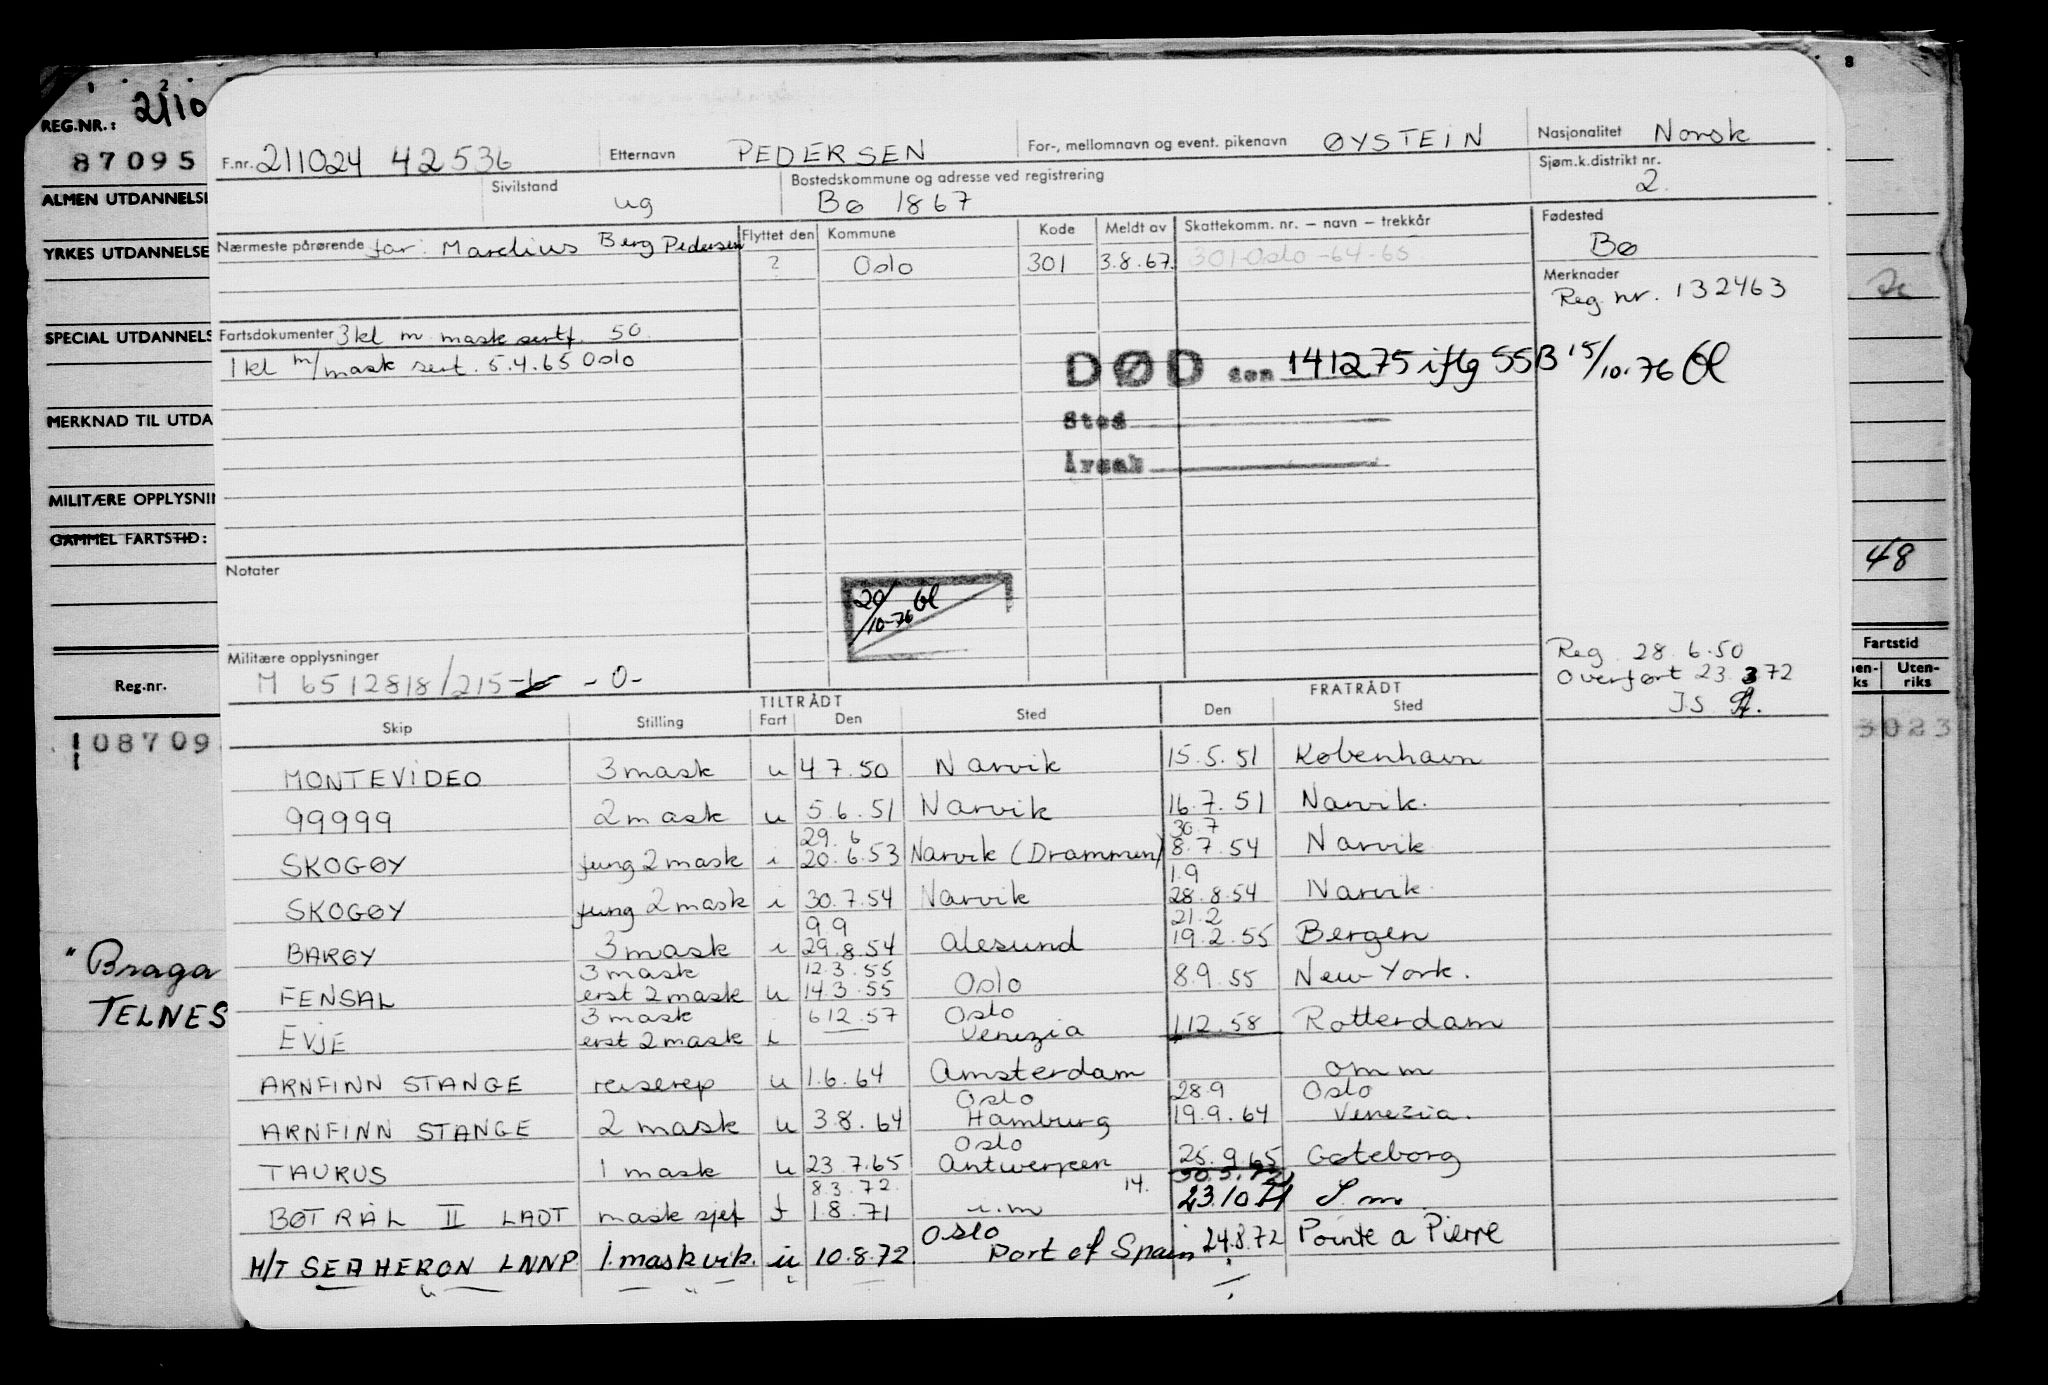 REG.NR.: 2/10
87095
ALMEN UTDANNELSE
YRKES UTDANNELSE
SPECIAL UTDANNELS
MERKNAD TIL UTDA
MILITÆRE OPPLYSNI
GAMMEL FARTSTID:
48
Fartstid
Reg.nr.
Uten-
riks
108709
3023
"Braga
TELNES
F.nr. 211024 42536 Etternavn PEDERSEN For-, mellomnavn og event. pikenavn ØYSTEIN Nasjonalitet Norsk
Sivilstand ug Bostedskommune og adresse ved registrering Bø 1867 Sjøm.k.distrikt nr. 2.
Nærmeste pårørende far: Marelius Berg Pedersen Flyttet den Kommune Kode Meldt av Skattekomm. nr. – navn – trekkår Fødested Bø
? Oslo 301 3.8.67. 301 Oslo -64-65
Merknader
Reg. nr. 132463
Fartsdokumenter 3 kl m mask sertf. 50.
1 kl m/mask sert. 5.4.65 Oslo
DØD den 141275 iflg SSB 15/10.76
Sted
Årsak
Notater
20/10-76
Militære opplysninger
M 6512818/215 -0-
Reg. 28.6.50
Overført 23.3 72
J.S.
TILTRÅDT FRATRÅDT
Skip Stilling Fart Den Sted Den Sted
MONTEVIDEO 3 mask u 4 7.50 Narvik 15.5.51 København
99999 2 mask u 5.6.51 Narvik 16.7.51 Narvik.
29.6 30.7
SKOGØY fung 2 mask i 20.6.53 Narvik (Drammen) 8.7.54 Narvik
1.9
SKOGØY fung 2 mask i 30.7.54 Narvik 28.8.54 Narvik.
9 9 21.2
BARØY 3 mask i 29.8.54 Ålesund 19.2.55 Bergen
3 mask 12.3.55
FENSAL erst 2 mask u 14.3.55 Oslo 8.9.55 New York.
3 mask 6 12.57 Oslo
EVJE erst 2 mask Venezia 1.12.58 Rotterdam
ARNFINN STANGE reiserep u 1.6.64 Amsterdam omm
Oslo 28.9 Oslo
ARNFINN STANGE 2 mask u 3.8.64 Hamburg 19.9.64 Venezia.
Oslo
TAURUS 1 mask u 23.7.65 Antwerpen 25.9.65 Gøteborg
8.3.72. 14.
BØTRÅL II LADT mask sjef f 1.8.71 i.m 23.10 71 S.m.
Oslo
M/T SEA HERON LNNP 1. maskvik. u 10.8.72. Port of Spain 24.8.72 Pointe a Pierre